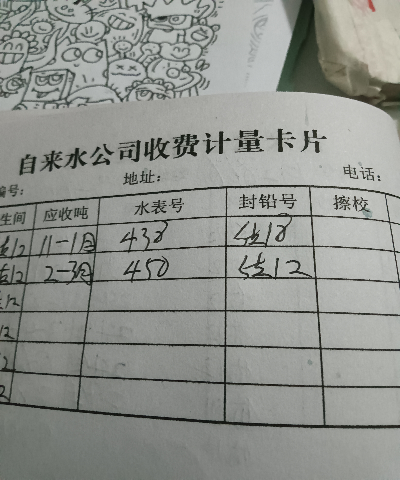 自来水公司收费计量卡片
编号: 地址: 电话:
生间 应收吨 水表号 封铅号 擦校
12 11-1月 438 18
12 2-3月 450 12
12
12
2
2